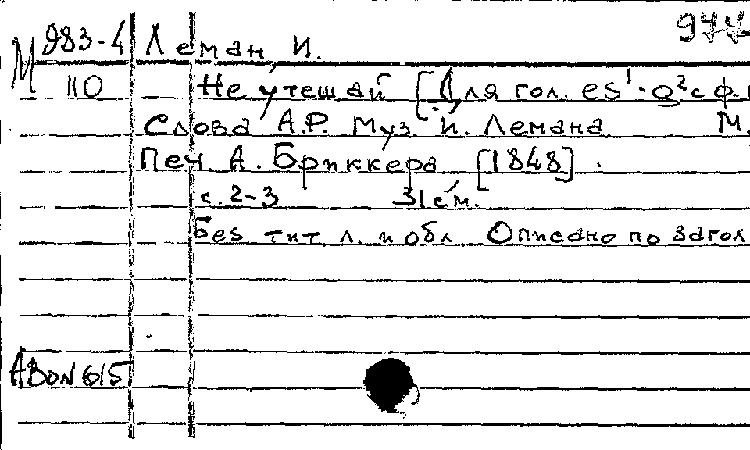 977
М 983-4 Леман, И.
110 Не утешай [Для гол. es¹-g² с ф.
Слова А.Р. Муз. И. Лемана М.
Печ. А. Бриккера [1848].
с. 2-3 31 см.
Без тит. л. и обл. Описано по загол